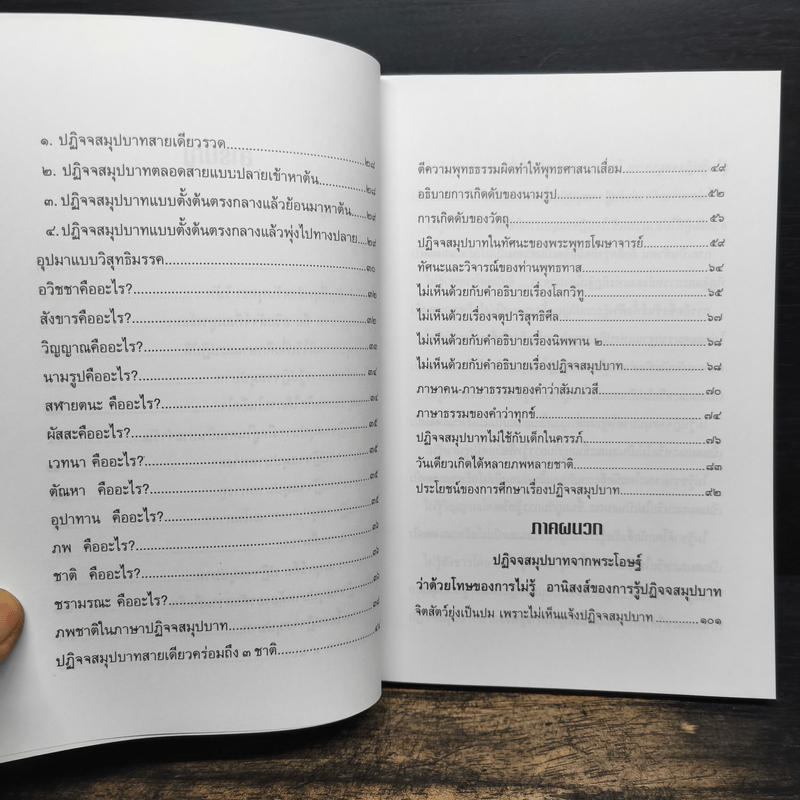 ๑. ปฏิจจสมุปบาทสายเดียวรวด..........๒๘
๒. ปฏิจจสมุปบาทตลอดสายแบบปลายเข้าหาต้น..........๒๘
๓. ปฏิจจสมุปบาทแบบตั้งต้นตรงกลางแล้วย้อนมาหาต้น..........๒๙
๔. ปฏิจจสมุปบาทแบบตั้งต้นตรงกลางแล้วพุ่งไปทางปลาย..........๒๙
อุปมาแบบวิสุทธิมรรค..........๓๐
อวิชชาคืออะไร?..........๓๒
สังขารคืออะไร?..........๓๒
วิญญาณคืออะไร?..........๓๓
นามรูปคืออะไร?..........๓๔
สฬายตนะ คืออะไร?..........๓๔
ผัสสะคืออะไร?..........๓๕
เวทนา คืออะไร?..........๓๕
ตัณหา คืออะไร?..........๓๕
อุปาทาน คืออะไร?..........๓๕
ภพ คืออะไร?..........๓๖
ชาติ คืออะไร?..........๓๖
ชรามรณะ คืออะไร?..........๓๖
ภพชาติในภาษาปฏิจจสมุปบาท..........๓๘
ปฏิจจสมุปบาทสายเดียวคร่อมถึง ๓ ชาติ..........
ตีความพุทธธรรมผิดทำให้พุทธศาสนาเสื่อม..........๔๙
อธิบายการเกิดดับของนามรูป..........๕๒
การเกิดดับของวัตถุ..........๕๖
ปฏิจจสมุปบาทในทัศนะของพระพุทธโฆษาจารย์..........๕๙
ทัศนะและวิจารณ์ของท่านพุทธทาส..........๖๔
ไม่เห็นด้วยกับคำอธิบายเรื่องโลกวิทู..........๖๕
ไม่เห็นด้วยเรื่องจตุปาริสุทธิศีล..........๖๗
ไม่เห็นด้วยกับคำอธิบายเรื่องนิพพาน ๒..........๖๘
ไม่เห็นด้วยกับคำอธิบายเรื่องปฏิจจสมุปบาท..........๖๘
ภาษาคน-ภาษาธรรมของคำว่าสัมภเวสี..........๗๐
ภาษาธรรมของคำว่าทุกข์..........๗๔
ปฏิจจสมุปบาทไม่ใช้กับเด็กในครรภ์..........๗๖
วันเดียวเกิดได้หลายภพหลายชาติ..........๘๓
ประโยชน์ของการศึกษาเรื่องปฏิจจสมุปบาท..........๙๒
ภาคผนวก
ปฏิจจสมุปบาทจากพระโอษฐ์
ว่าด้วยโทษของการไม่รู้ อานิสงส์ของการรู้ปฏิจจสมุปบาท
จิตสัตว์ยุ่งเป็นปม เพราะไม่เห็นแจ้งปฏิจจสมุปบาท..........๑๐๑